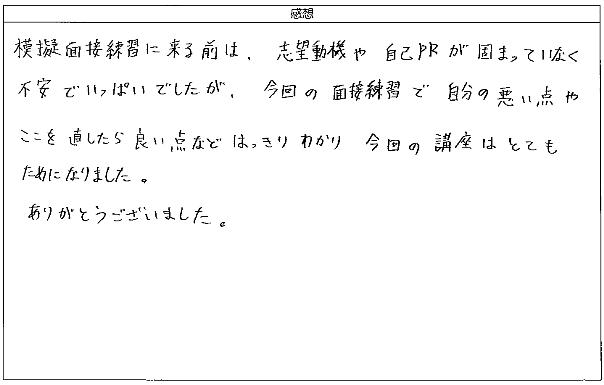 感想
模擬面接練習に来る前は、志望動機や自己PRが固まっていなく
不安でいっぱいでしたが、今回の面接練習で自分の悪い点や
ここを直したら良い点などはっきりわかり今回の講座はとても
ためになりました。
ありがとうございました。